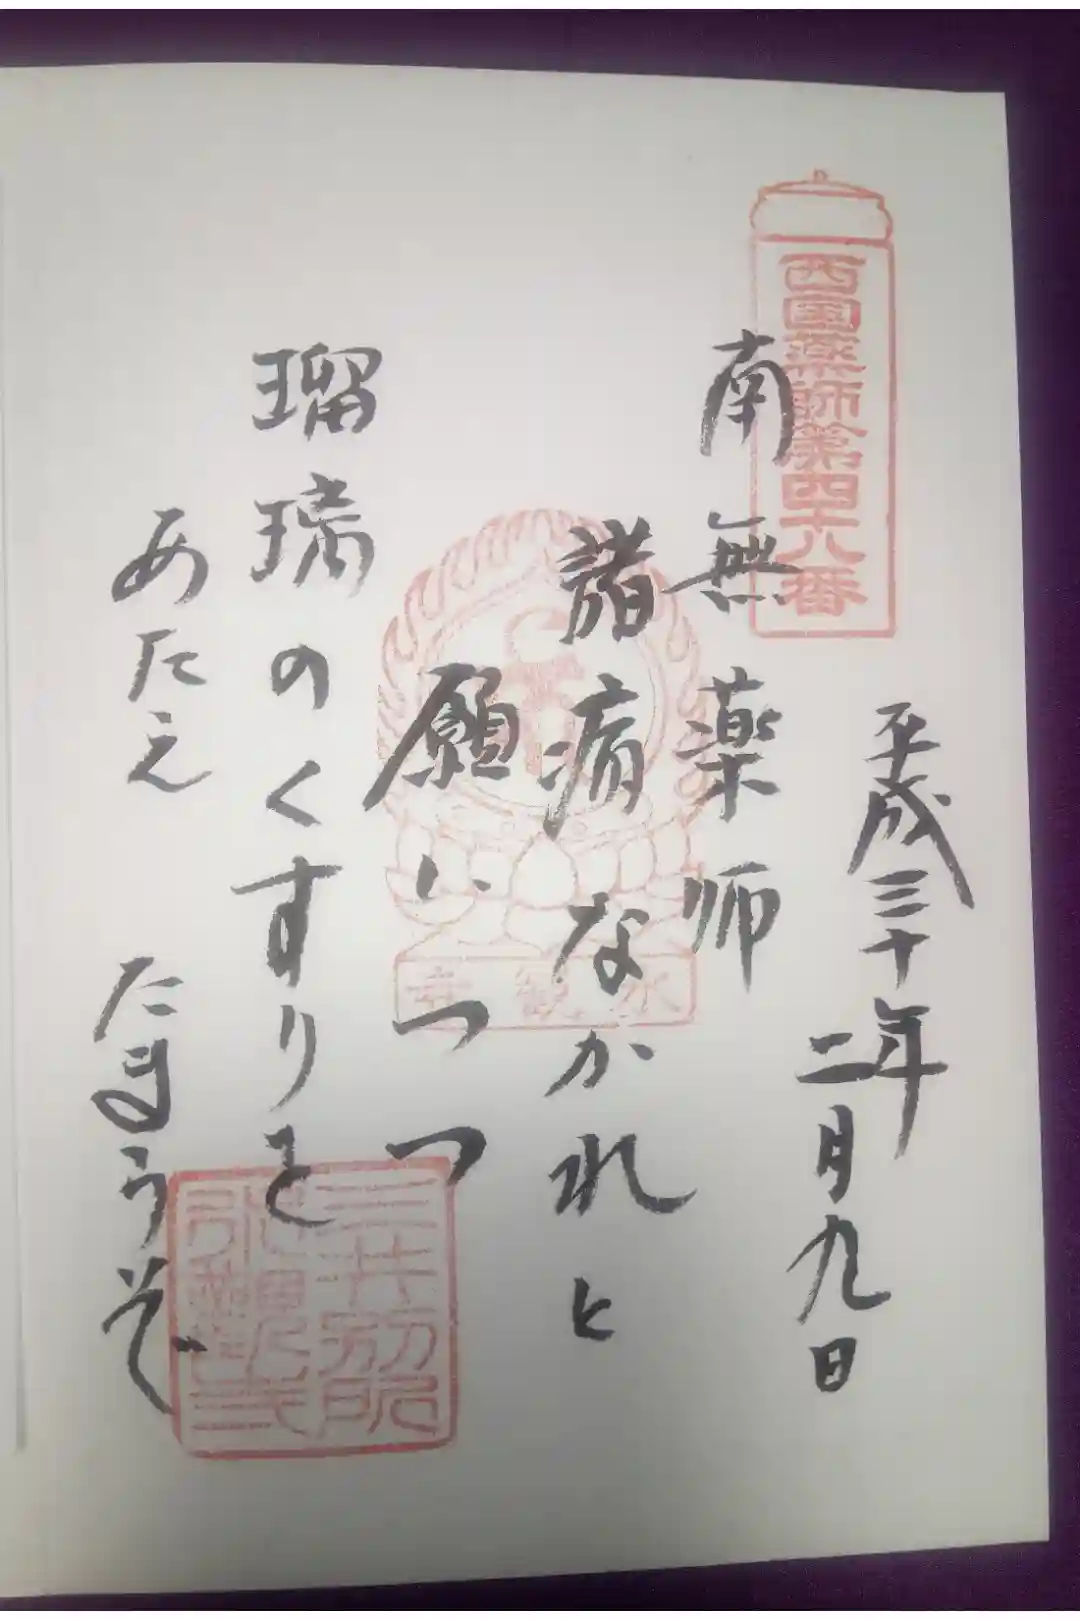 西国薬師第四十八番
平成三十年
二月九日
南無薬師
諸病なかれと
願いつつ
瑠璃のくすりを
あたえ たまうぞ
水観寺
三井別所
水観寺